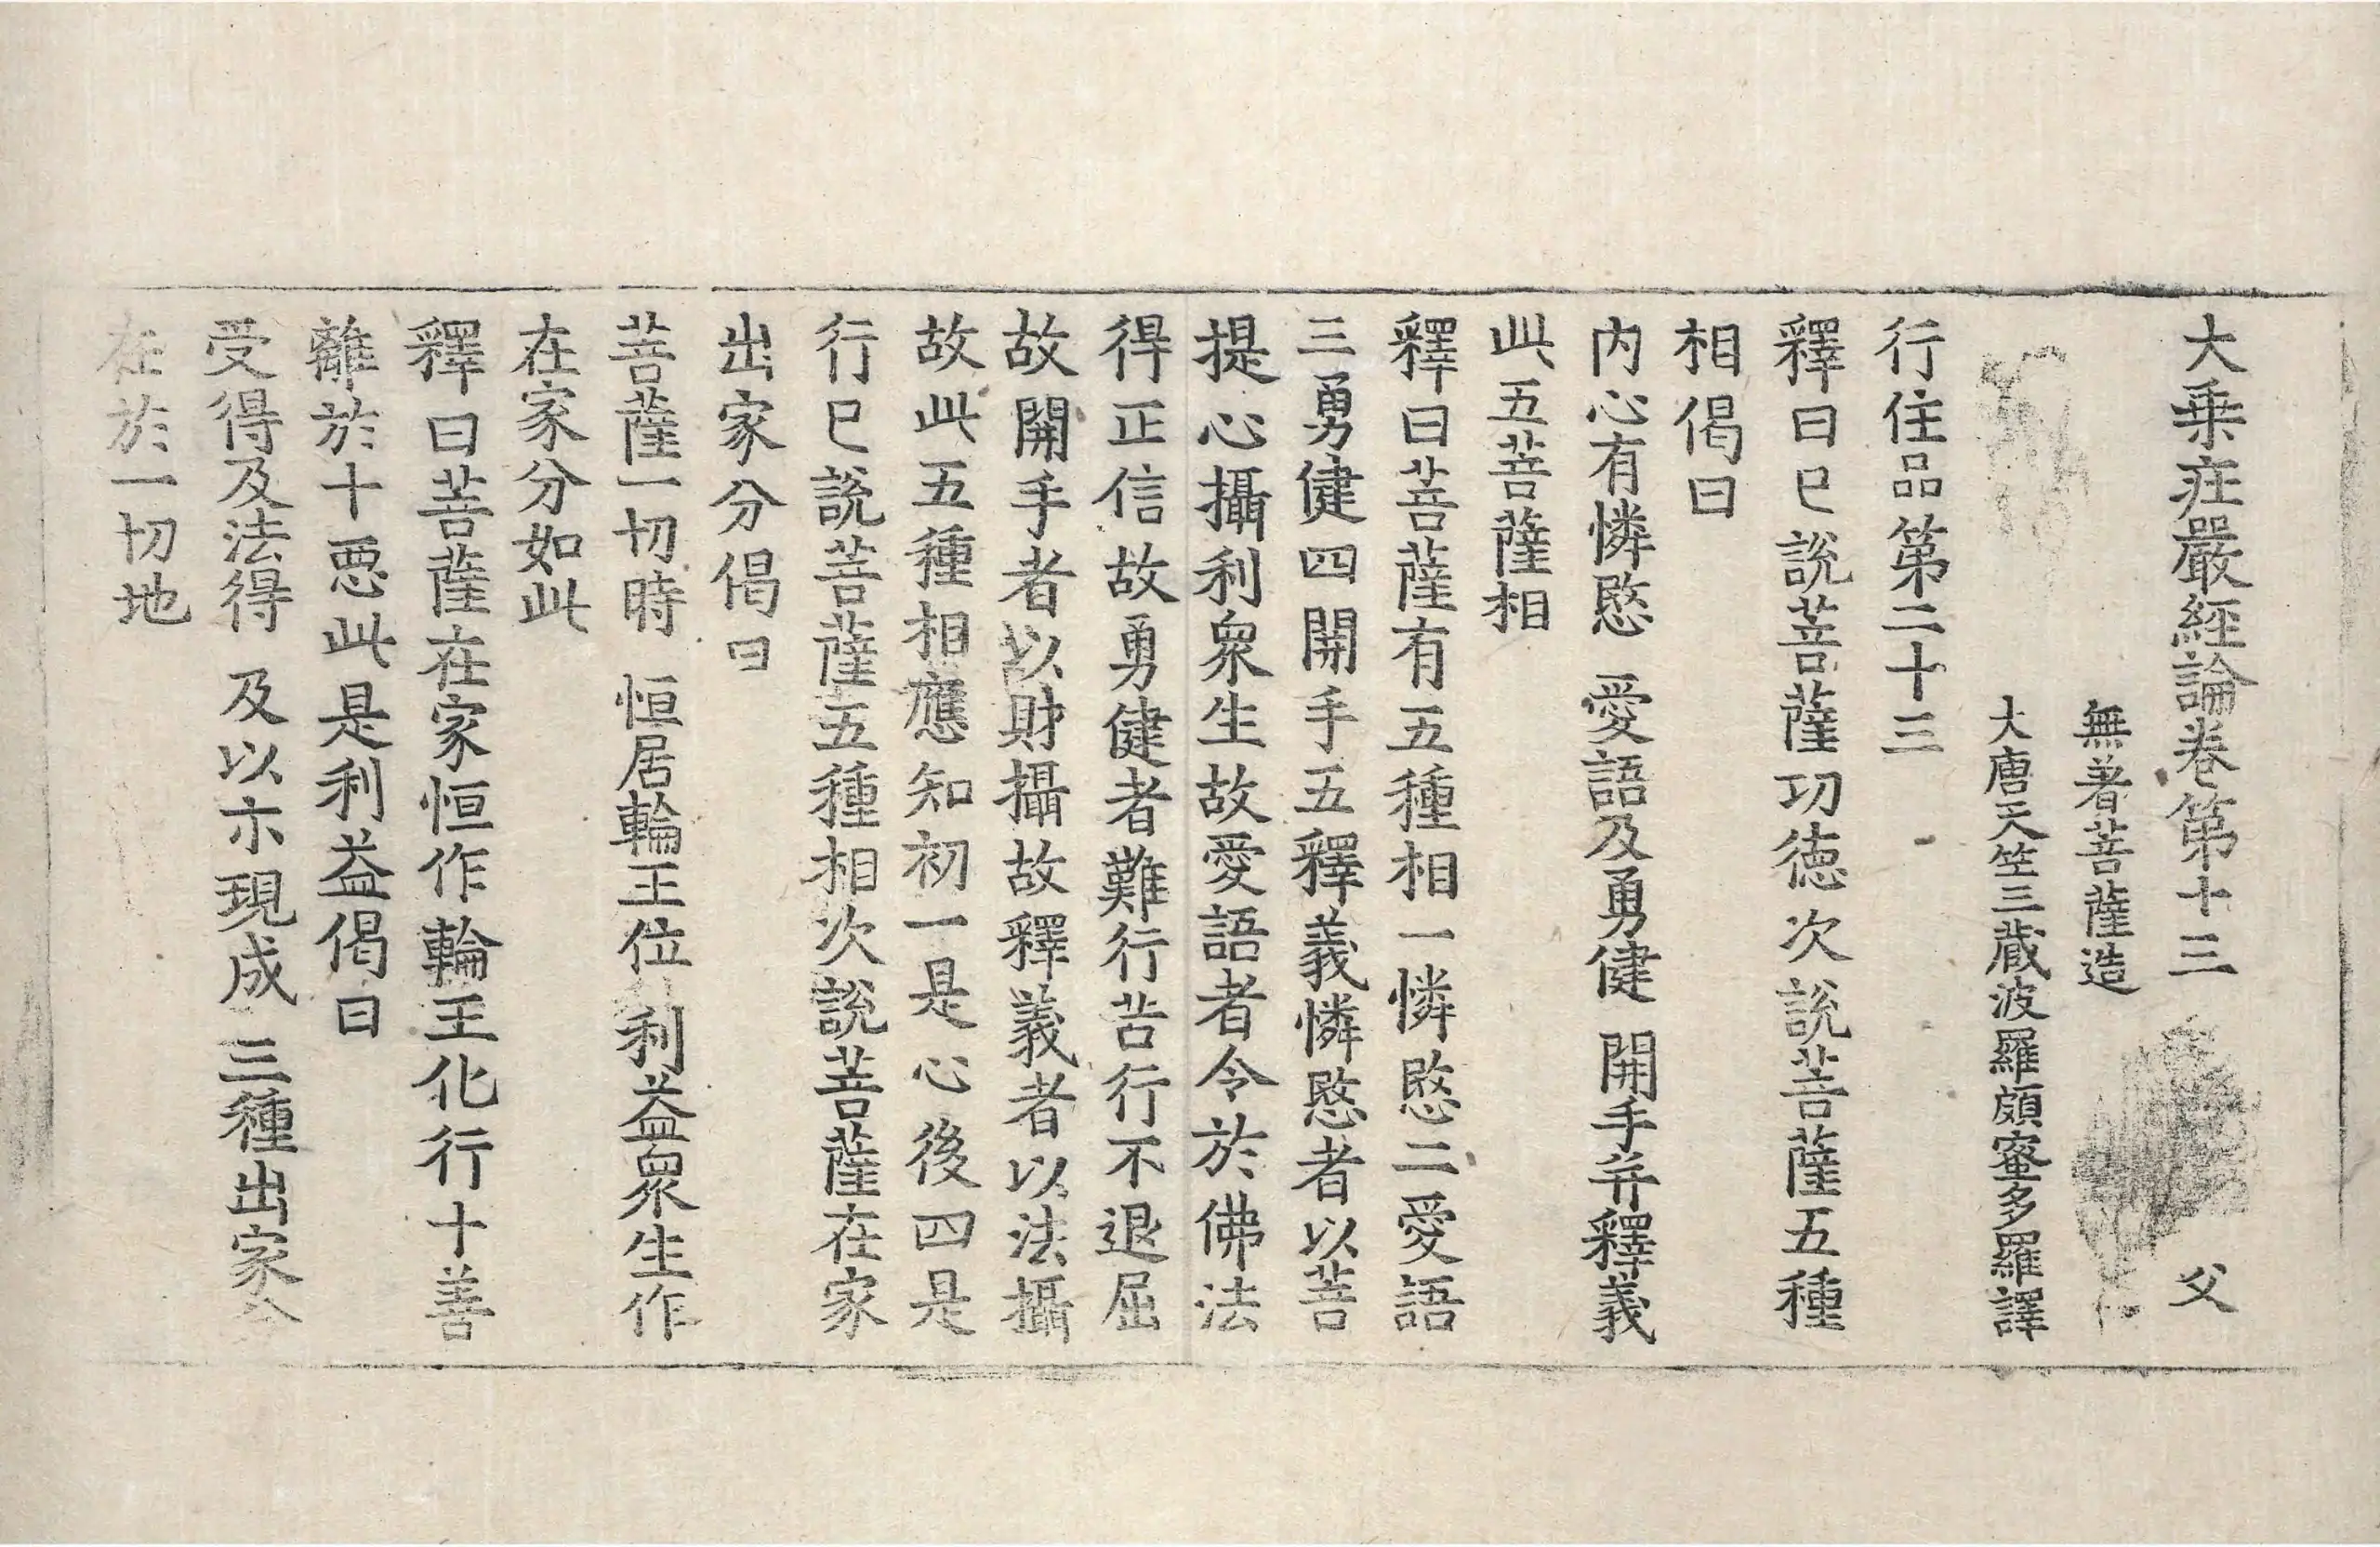 大乗疟嚴經論卷第十三 父
無著菩薩造
大唐天竺三蔵波羅頗蜜多羅譯
行住品第二十三
釋曰已說菩薩功德次說菩薩五種
相偈曰
内心有憐愍 愛語及勇健 開手并釋義
此五菩薩相
釋曰菩薩有五種相一憐愍二愛語
三勇健四開手五釋義憐愍者以菩
提心攝利衆生故愛語者令於佛法
得正信故勇健者難行苦行不退屈
故開手者以財攝故釋義者以法攝
故此五種相應知初一是心後四是
行已說菩薩五種相次說菩薩在家
出家分偈曰
菩薩一切時 恒居輪王位 利益衆生作
在家分如此
釋曰菩薩在家恒作輪王化行十善
離於十惡此是利益偈曰
受得及法得 及以示現成 三種出家分
在於一切地